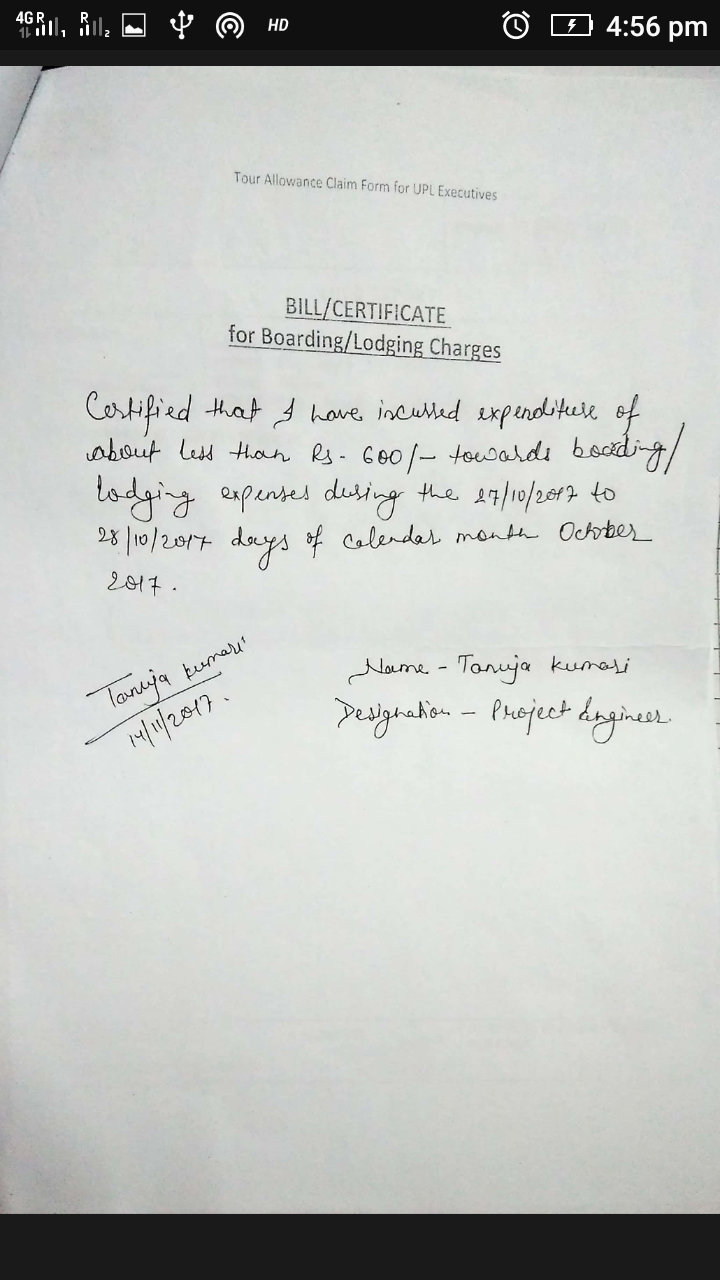 4G R 1 R 2 HD 4:56 pm
Tour Allowance Claim Form for UPL Executives
BILL/CERTIFICATE
for Boarding/Lodging Charges
Certified that I have incurred expenditure of
about less than Rs. 600/- towards boarding/
lodging expenses during the 27/10/2017 to
28/10/2017 days of calendar month October
2017.
Tanuja kumari
14/11/2017.
Name - Tanuja kumari
Designation - Project Engineer.